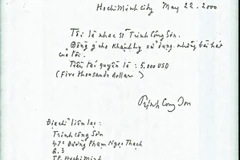 Hochiminh city May 22 - 2000
Tôi là nhạc sĩ Trịnh Công Sơn.
Đồng ý cho Khánh Ly sử dụng những bài hát
của tôi.
Tiền tác quyền là : 5.000 USD
(Five thousands dollar)
Trịnh Công Sơn
Địa chỉ liên lạc :
Trịnh Công Sơn
47C Đường Phạm Ngọc Thạch
Q.3
TP. Hochiminh